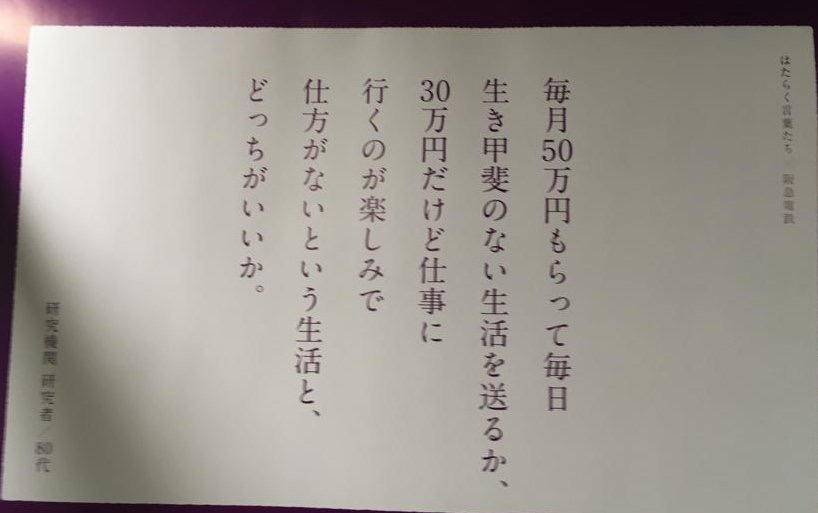 はたらく言葉たち × 阪急電鉄
毎月50万円もらって毎日
生き甲斐のない生活を送るか、
30万円だけど仕事に
行くのが楽しみで
仕方がないという生活と、
どっちがいいか。
研究機関 研究者／80代